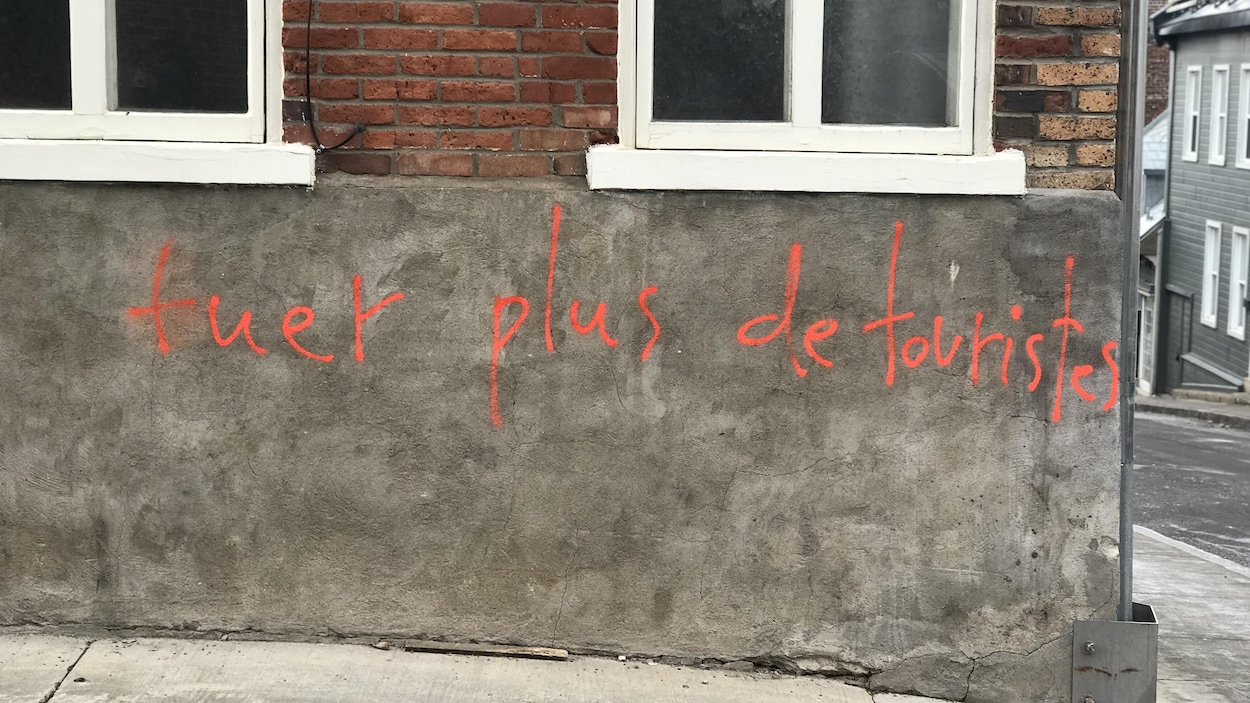 tuer plus de touristes